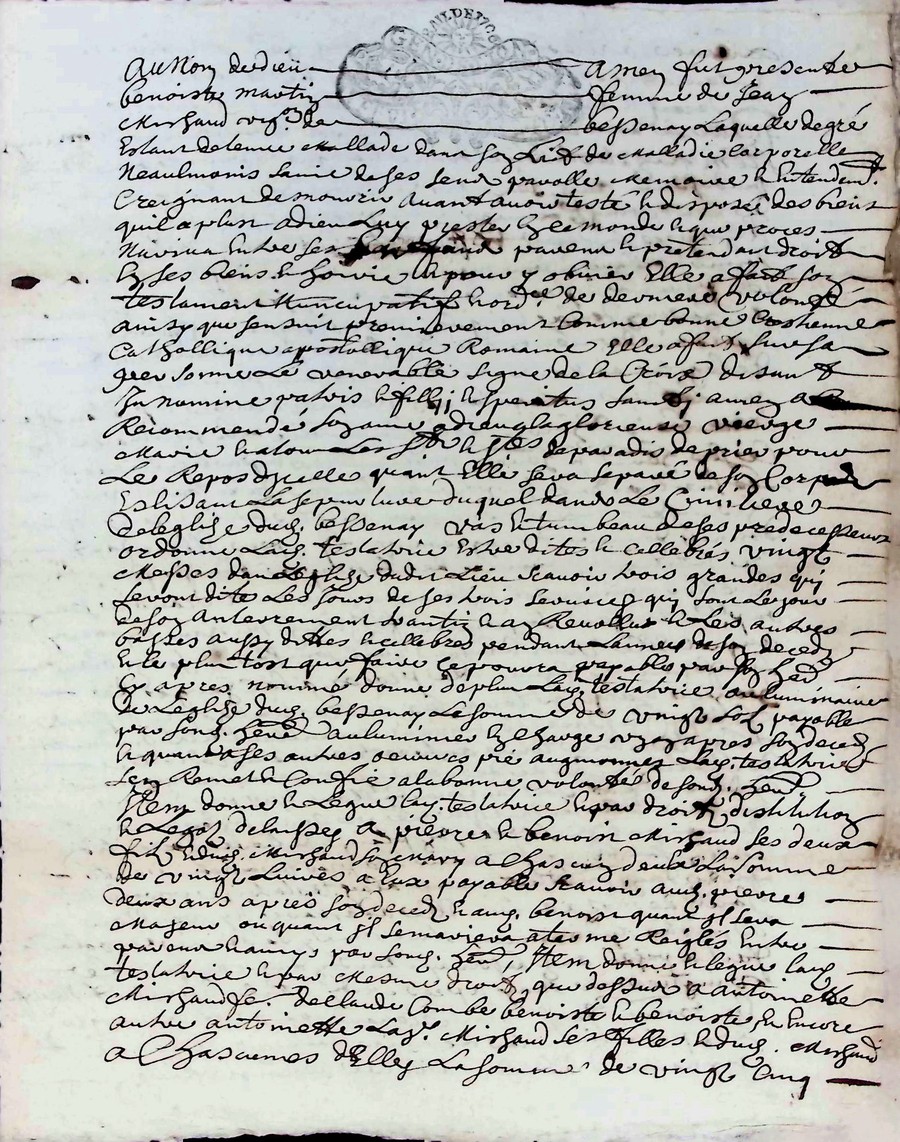 Au Nom de dieu Amen fut presente
benoiste martin femme de Jean
Mirhaud vig.on de bessenay Laquelle de gré
Estant detenue Mallade dans son Lict de Malladie Corporelle
Neaulmoins saine de ses sens parolle Memoire & Entendem.t
Creignant de mourir avant avoir testé & disposé des biens
quil a plust a dieu Luy prester En ce monde & que proces
Naviene Entre ses parens & pretendant droit
En ses biens & pour y obvier Elle a faict son
testament Nuncupatif & ord.e de derniere volonté
ainsy que sensuit premierement Comme bonne Crestienne
Catholique apostollique Romaine Elle a fait sur sa
personne Le venerable signe de la Croix disant
In nomine patris & filij & speritus sancti amen a
Recommendé son ame a dieu a la glorieuse vierge
Marie & a tous Les st & stes de paradis de prier pour
Le Repos dycelle quant Elle sera separé de son Corps
Eslisant La sepulture duquel dans Le Cimitiere
de Leglise dud. bessenay vas & tumbeau de ses predecesseurs
ordonne Lad. testatrice Estre dites & cellebrés vingt
Messes dans Leglise dudit Lieu scavoir trois grandes qui
seront dites Les Jours de ses trois services qui sont Le jour
de son Anterrement & an Revollu & Les autres
basses aussy dittes & cellebrés pendant Lannee de son deced
& le plus tost que faire ce pourra payables par son her
Cy apres nommé donne de plus Lad. testatrice au luminaire
de Leglise dud. bessenay La somme de vingt sols payable
par sond. her au luminier En Charge apres son deced
& quant a ses autres oeuvres pie augmones Lad. testatrice
sen Remet & Confie a la bonne volonté de sond. her
Item donne & Legue lad. testatrice & par droit distitution
& Legat delaisse a pierre & benoist Mirhaud ses deux
fils & dud. Mirhaud son mary a Chascun deux La somme
de vingt Livres a Eux payable scavoir aud. pierre
deux ans apres son deced & aud. benoist quant Il sera
Majeur ou quant Il se mariera a terme Reiglés Entre
parens & amys par sond. her Item donne & legue lad.
testatrice & par Mesme droit que dessus a Antoinette
Mirhaud fe. de Claude Combe benoiste & benoiste En Encore
autre antoinette Lad. Mirhaud ses filles & dud. Mirhaud
a Chascunes dElles La somme de vingt Cinq